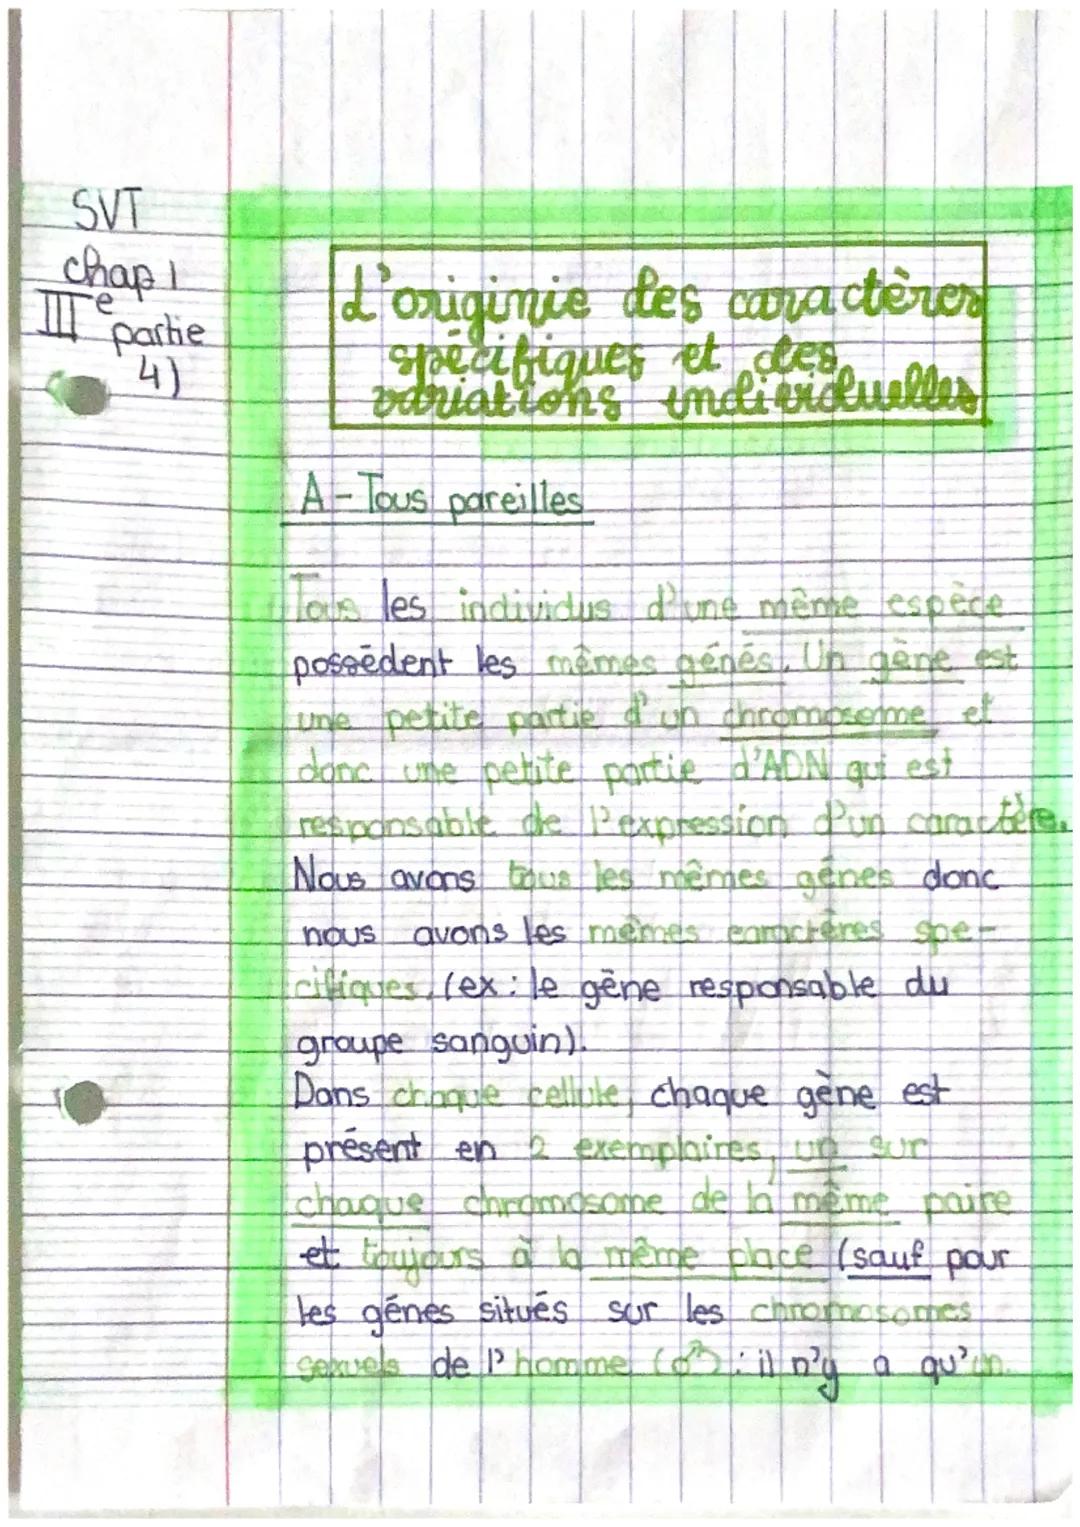 SVT
chap 1
IIIe partie
4)
L'originie des caractères
spécifiques et des
variations individuelles
A - Tous pareilles
Tous les individus d'une même espèce
possèdent les mêmes génés. Un gène est
une petite partie d'un chromosome et
donc une petite partie d'ADN qui est
responsable de l'expression d'un caractère.
Nous avons tous les mêmes gênes donc
nous avons les mêmes caractères spe-
cifiques. (ex : le gêne responsable du
groupe sanguin).
Dans chaque cellule, chaque gène est
présent en 2 exemplaires, un sur
chaque chromosome de la même paire
et toujours à la même place (sauf pour
les génes situés sur les chromosomes
sexuels de l'homme (♂) : il n'y a qu'un.